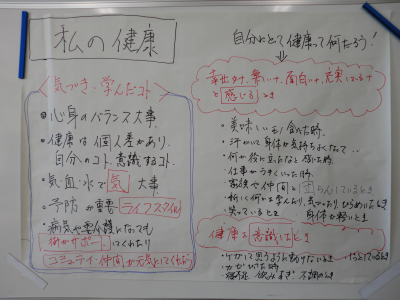 私の健康
気づき・学んだコト
・心身のバランス大事
・健康は個人差があり、
自分のコト意識するコト。
・気・血・水で気大事
・予防が重要 ライフスタイル
・病気や要介護になっても
何かサポートしてくれたり
コミュニティ・仲間が元気にしてくれる
自分にとって健康って何だろう!
幸せだナ、楽しいナ、面白いナ、充実しているナ
と感じるとき
・美味しいもの食べた時、
・汗かいて身体が気持ちよくなって
・何か役に立ったなと感じた時
・仕事がうまくいった時、
・家族や仲間と
・新しく何かを学んだり、気づいたり、ひらめいたとき
・笑っているとき
身体が軽いとき
健康を意識したとき
・ケガして思うように動けないとき
・カゼひいた時
不調のとき